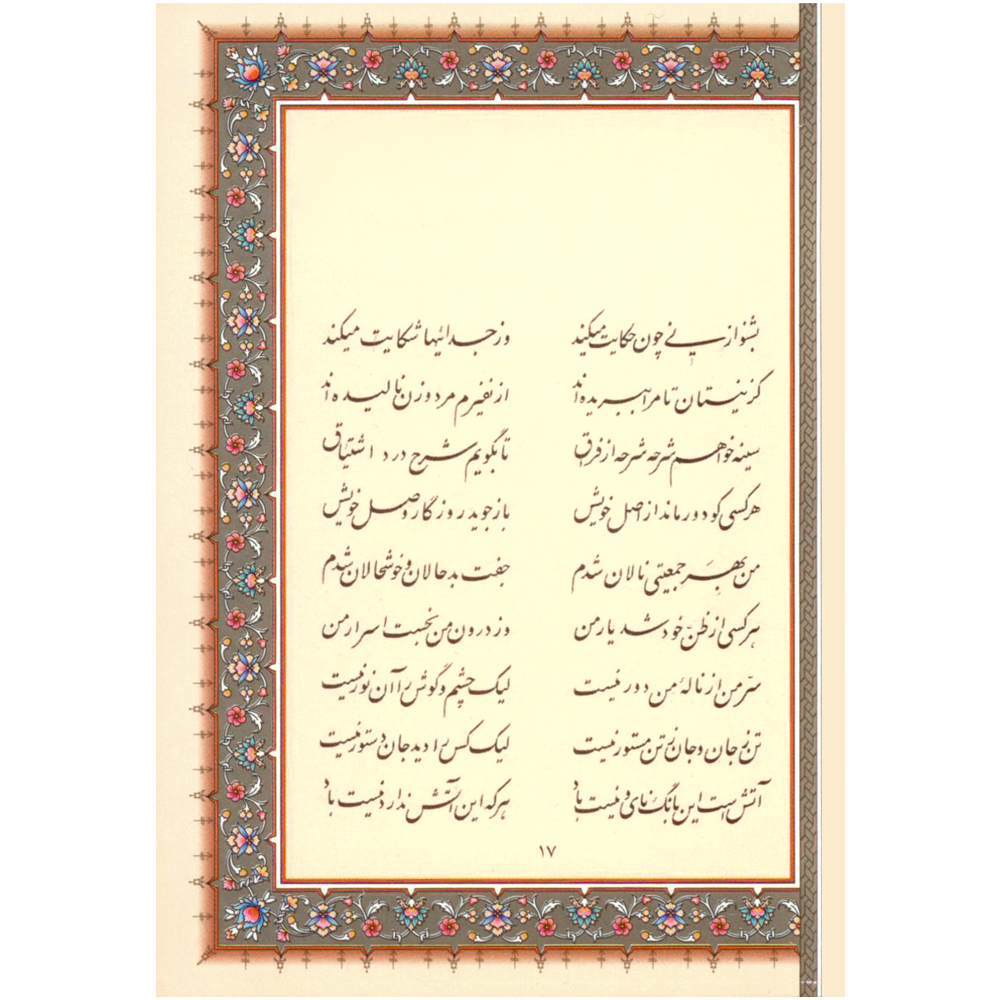 بشنو از نی چون حکایت میکند وز جدائیها شکایت میکند
کز نیستان تا مرا ببریده‌اند از نفیرم مرد و زن نالیده‌اند
سینه خواهم شرحه شرحه از فراق تا بگویم شرح درد اشتیاق
هر کسی کو دور ماند از اصل خویش باز جوید روزگار وصل خویش
من بهر جمعیتی نالان شدم جفت بدحالان و خوشحالان شدم
هر کسی از ظنّ خود شد یار من وز درون من نجست اسرار من
سرّ من از نالهٔ من دور نیست لیک چشم و گوش را آن نور نیست
تن ز جان و جان ز تن مستور نیست لیک کس را دید جان دستور نیست
آتش است این بانگ نای و نیست باد هر که این آتش ندارد نیست باد
۱۷